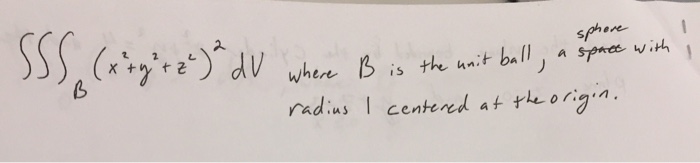 ∭_B (x²+y²+z²)² dV where B is the unit ball, a sphere with
radius 1 centered at the origin.